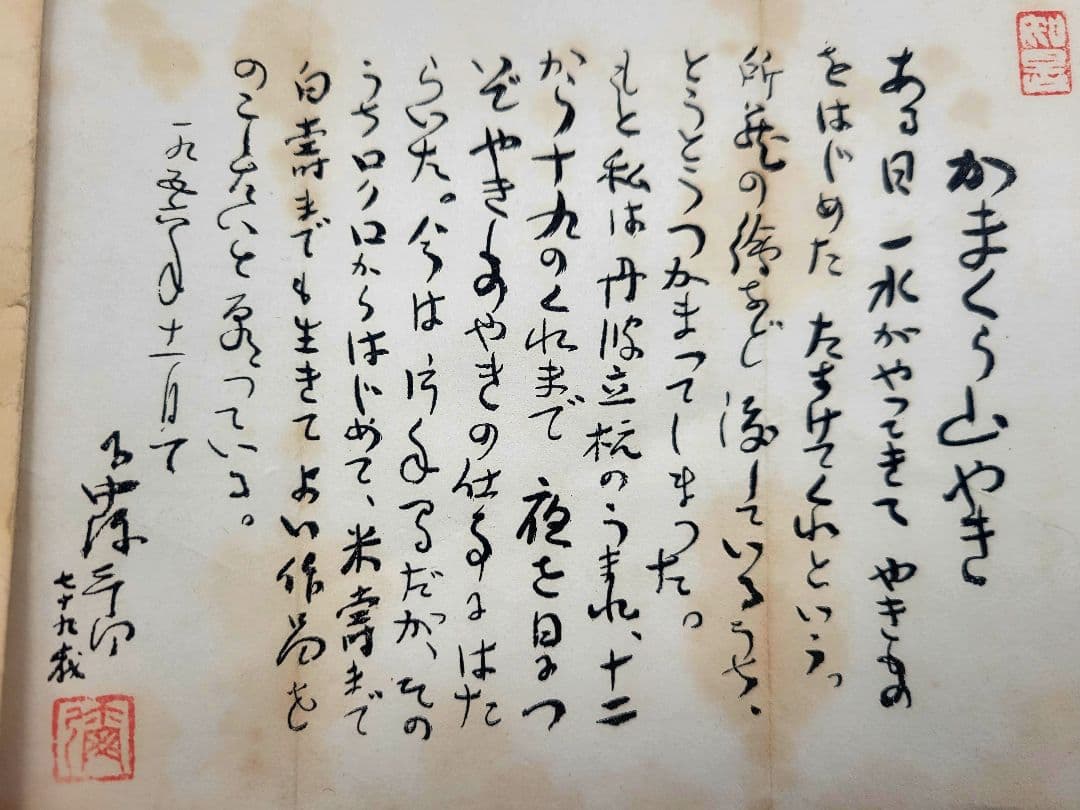 かまくら山やき
ある日 一水がやってきて やきもの
をはじめた たすけてくれという。
所蔵の絵など 渡しているうち、
とうとうつかまってしまった。
もと私は 丹波立杭のうまれ、十二
から十九のくれまで 夜を日につ
いで やきものやきの仕事にはた
らいた。今は 片手間だが、その
うちロクロからはじめて、米壽まで
白壽までも生きて よい作品を
のこしたいと 思っている。
一九五六年十一月
七十九歳
彌